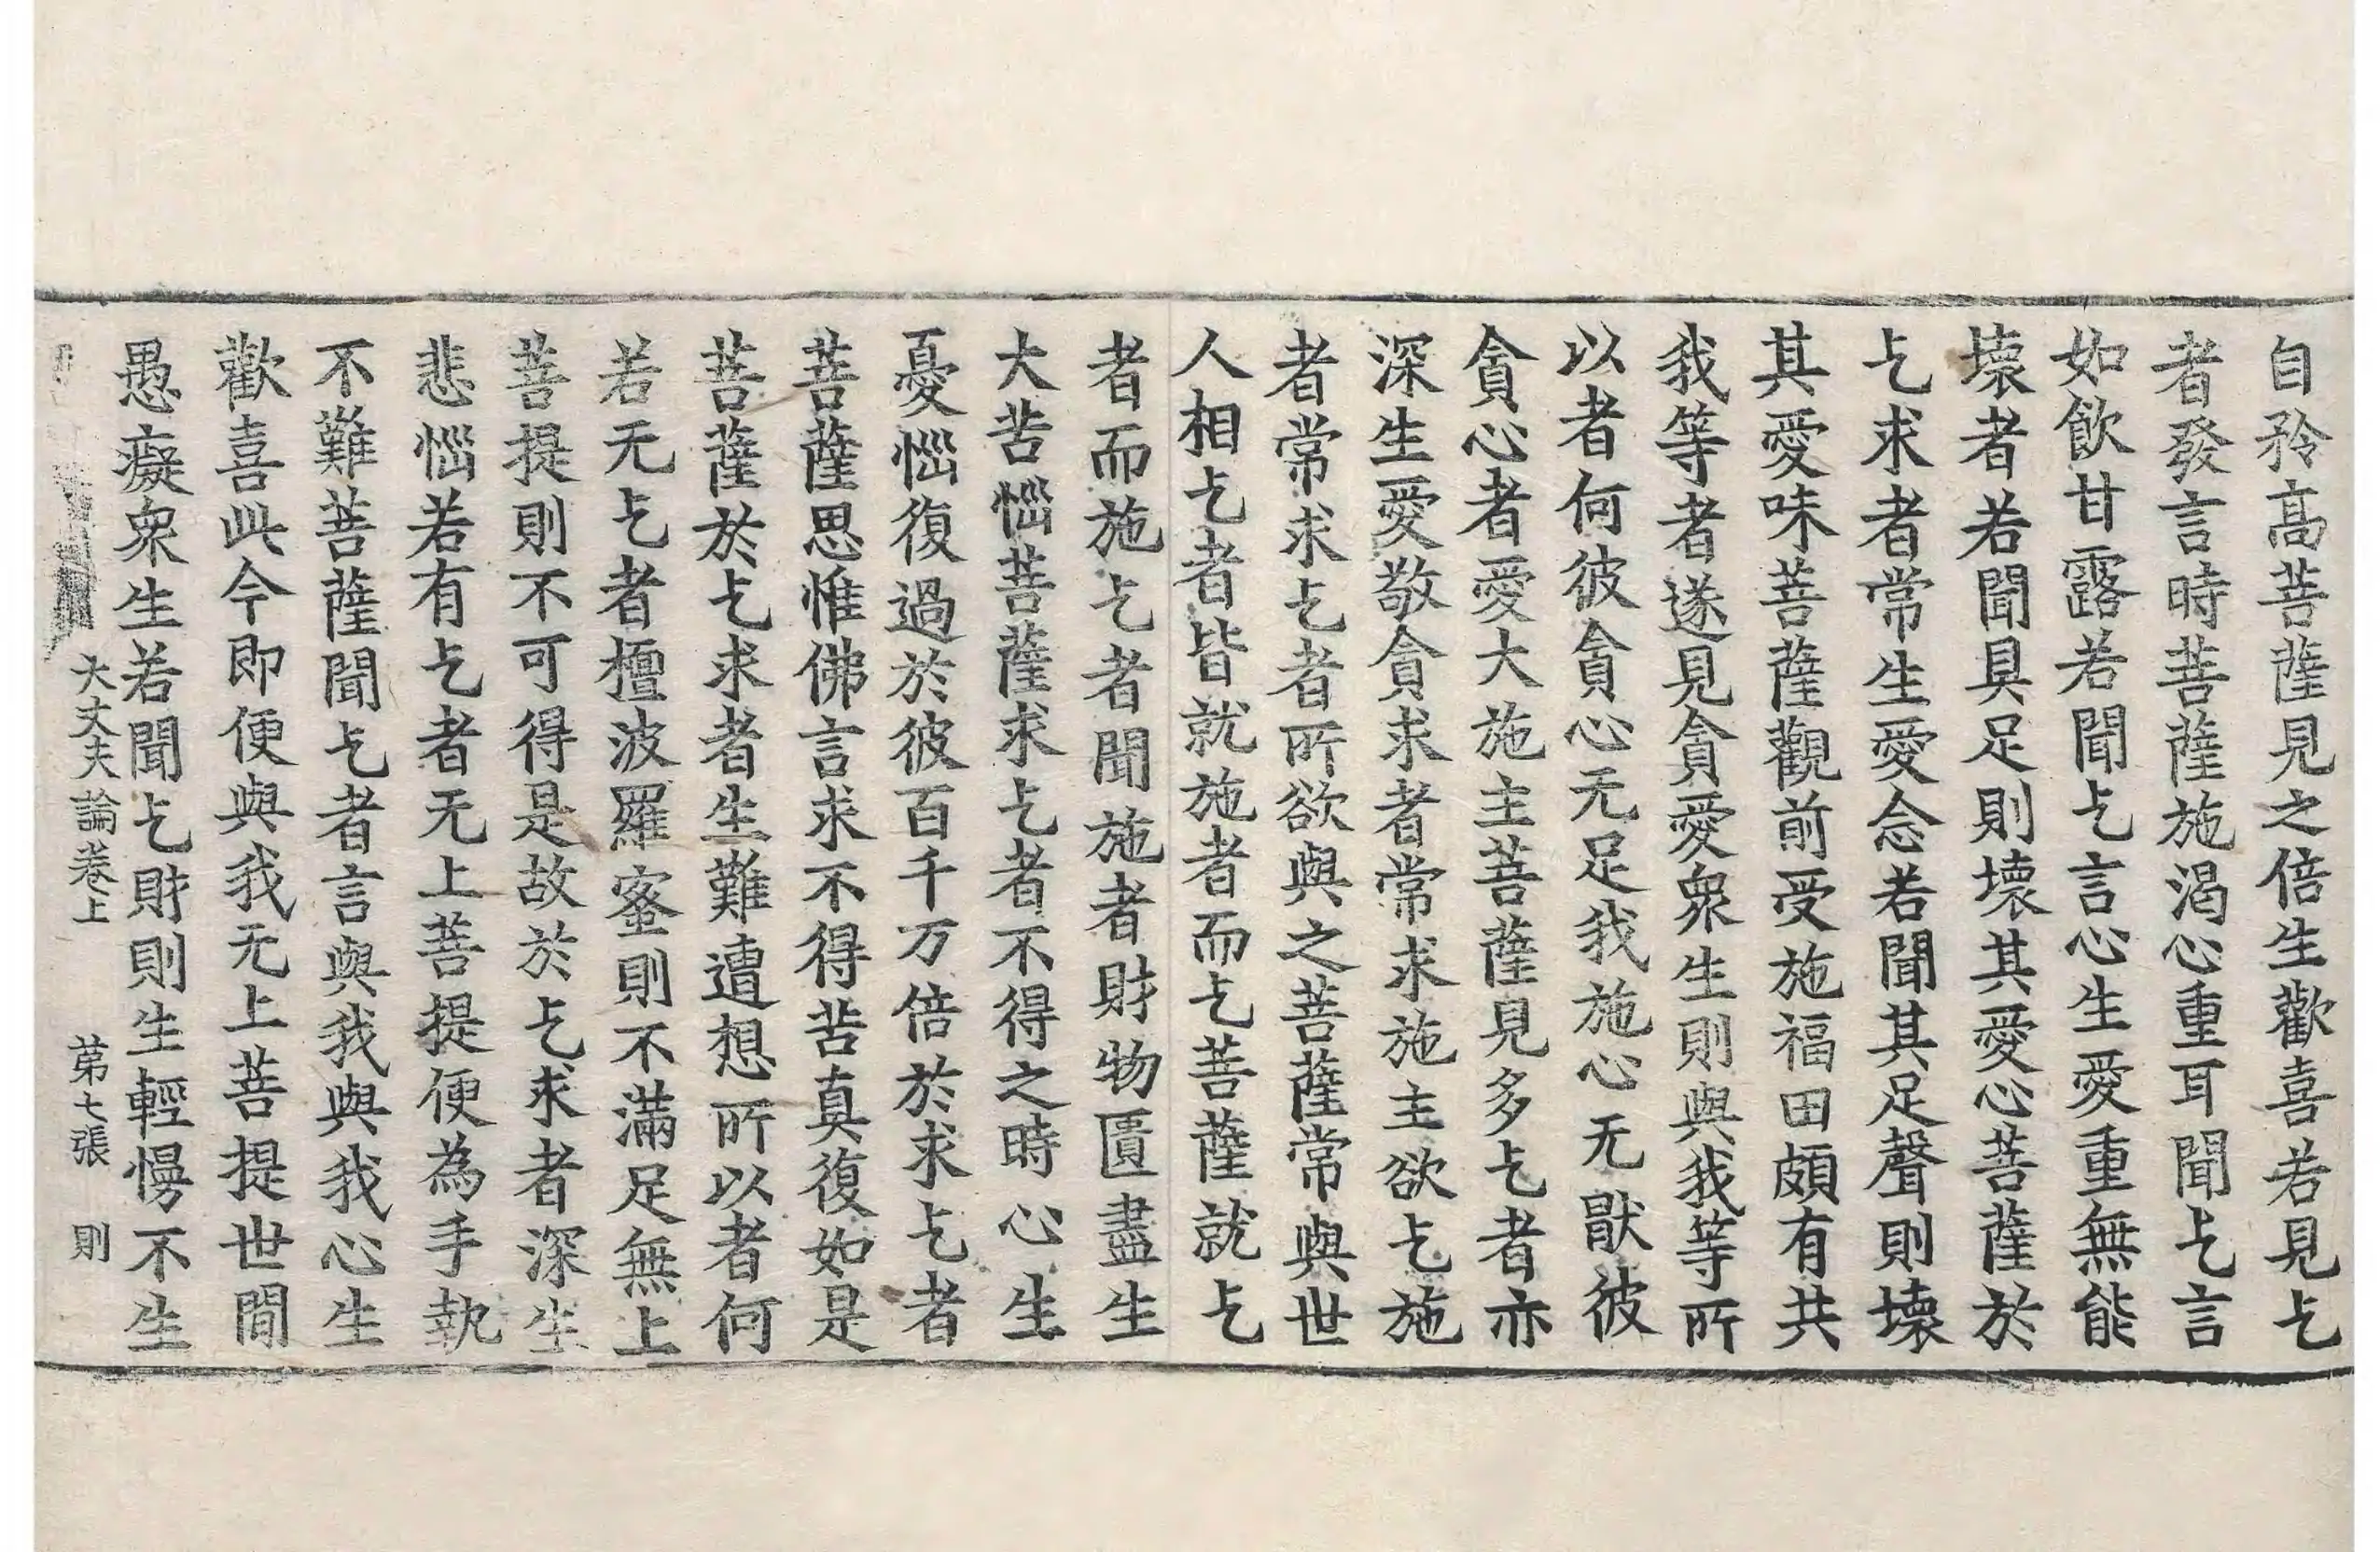 自矜高菩薩見之倍生歡喜若見乞
者發言時菩薩施渴心重耳聞乞言
如飲甘露若聞乞言心生愛重無能
壞者若聞具足則壞其愛心菩薩於
乞求者常生愛念若聞其足聲則壞
其愛味菩薩觀前受施福田頗有共
我等者遂見貪愛衆生則與我等所
以者何彼貪心无足我施心无猒彼
貪心者愛大施主菩薩見多乞者亦
深生愛敬貪求者常求施主欲乞施
者常求乞者所欲與之菩薩常與世
人相乞者皆就施者而乞菩薩就乞
者而施乞者聞施者財物匱盡生
大苦惱菩薩求乞者不得之時心生
憂惱復過於彼百千万倍於求乞者
菩薩思惟佛言求不得苦真復如是
菩薩於乞求者生難遭想所以者何
若无乞者檀波羅蜜則不滿足無上
菩提則不可得是故於乞求者深生
悲惱若有乞者无上菩提便為手執
不難菩薩聞乞者言與我與我心生
歡喜此今即便與我无上菩提世間
愚癡衆生若聞乞財則生輕慢不生
大丈夫論卷上 第七張 則